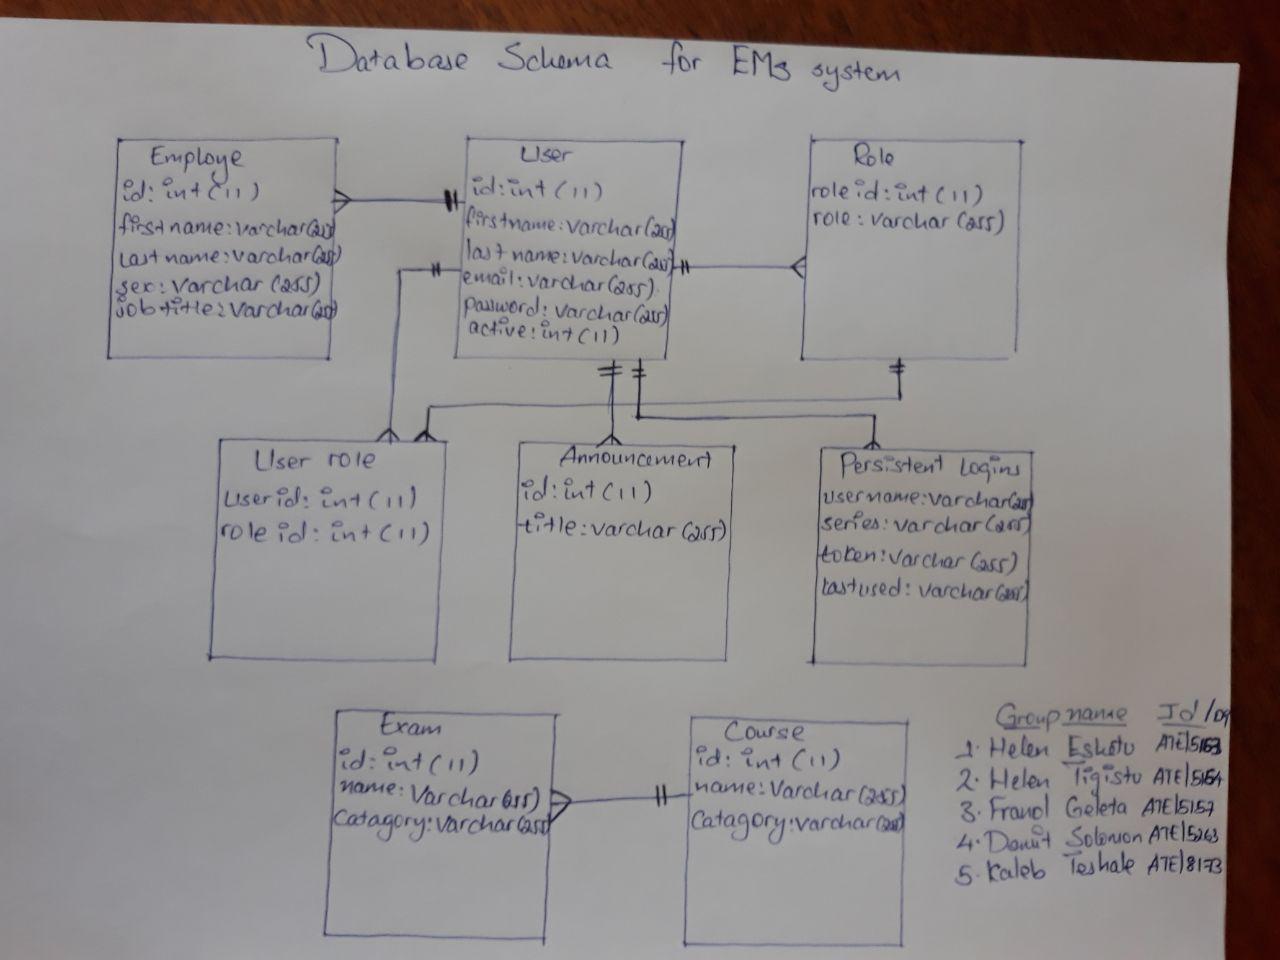 Database Schema for EMS system
Employe
id: int (11)
first name: varchar(255)
Last name: varchar(255)
sex: varchar (255)
job title: varchar(255)
User
id: int (11)
firstname: varchar(255)
last name: varchar(255)
email: varchar(255).
password: varchar(255)
active: int (11)
Role
role id: int (11)
role: varchar (255)
User role
User id: int (11)
role id: int (11)
Announcement
id: int (11)
title: varchar (255)
Persistent Logins
username: varchar(255)
series: varchar(255)
token: varchar (255)
Last used: varchar(255)
Exam
id: int (11)
name: Varchar(255)
Catagory: varchar(255)
Course
id: int (11)
name: Varchar(255)
Catagory: varchar(255)
Group name Id /09
1. Helen Eshetu ATE/5153
2. Helen Tigistu ATE/5154
3. Fraol Geleta ATE/5157
4. Dawit Solomon ATE/5263
5. Kaleb Teshale ATE/8173